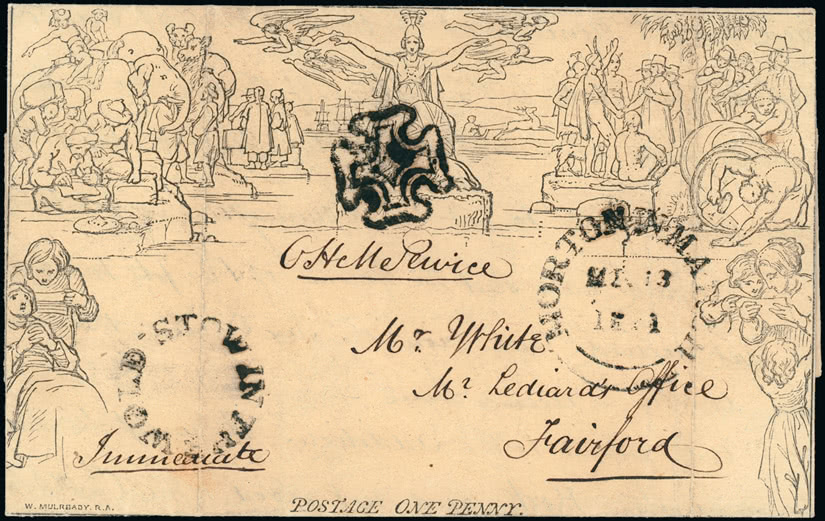 O H M Service
MORTON IN MA
MR 13
1841
Mr. White
Mr. Lediard's Office
Fairford
STOW IN THE WOLD
Immediate
W. MULREADY. R.A.
POSTAGE ONE PENNY.